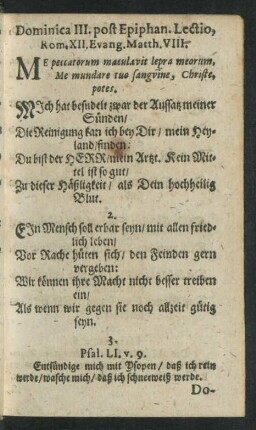 Dominica III. post Epiphan. Lectio,
Rom. XII, Evang. Matth. VIII.
ME peccatorum maculavit lepra meorum,
Me mundare tuo sangvine, Christe,
potes.
MIch hat besudelt zwar der Aussatz meiner
Sünden/
Die Reinigung kan ich bey Dir/ mein Hey-
land/finden:
Du bist der HERR/mein Artzt. Kein Mit-
tel ist so gut/
Zu dieser Häßligkeit/ als Dein hochheilig
Blut.
2.
EIn Mensch soll erbar seyn/ mit allen fried-
lich leben/
Vor Rache hüten sich/ den Feinden gern
vergeben:
Wir können ihre Macht nicht besser treiben
ein/
Als wenn wir gegen sie noch allzeit gütig
seyn.
3.
Psal. LI. v. 9.
Entsündige mich mit Ysopen/ daß ich rein
werde/wasche mich/ daß ich schneeweiß werde.
Do-